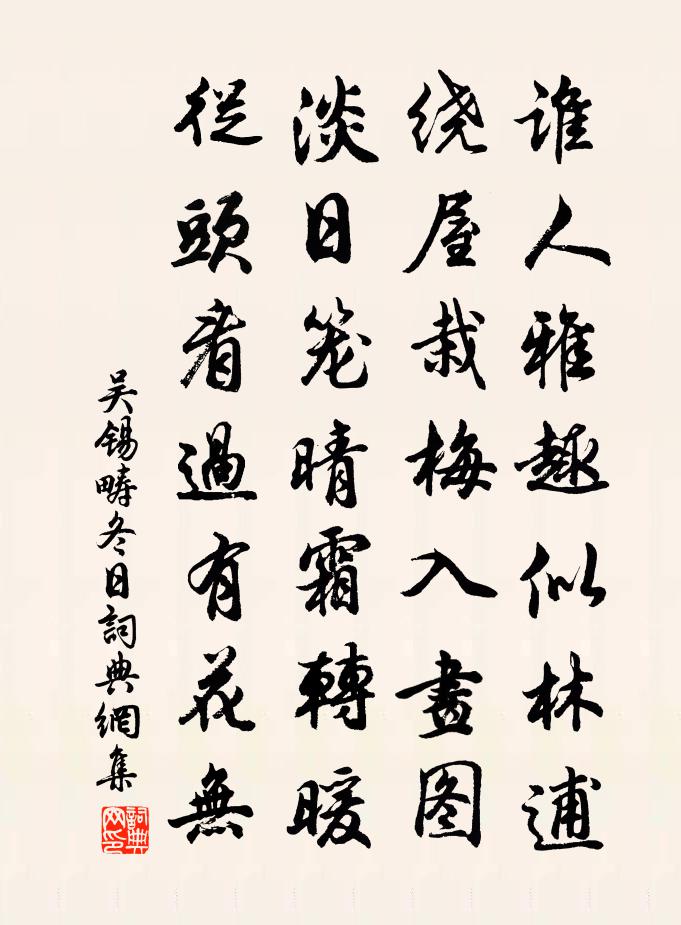 谁人雅趣似林逋
绕屋栽梅入畫图
淡日笼晴霜轉暖
從頭看過有花無
吴锡疇冬日詞典網集
詞典网印